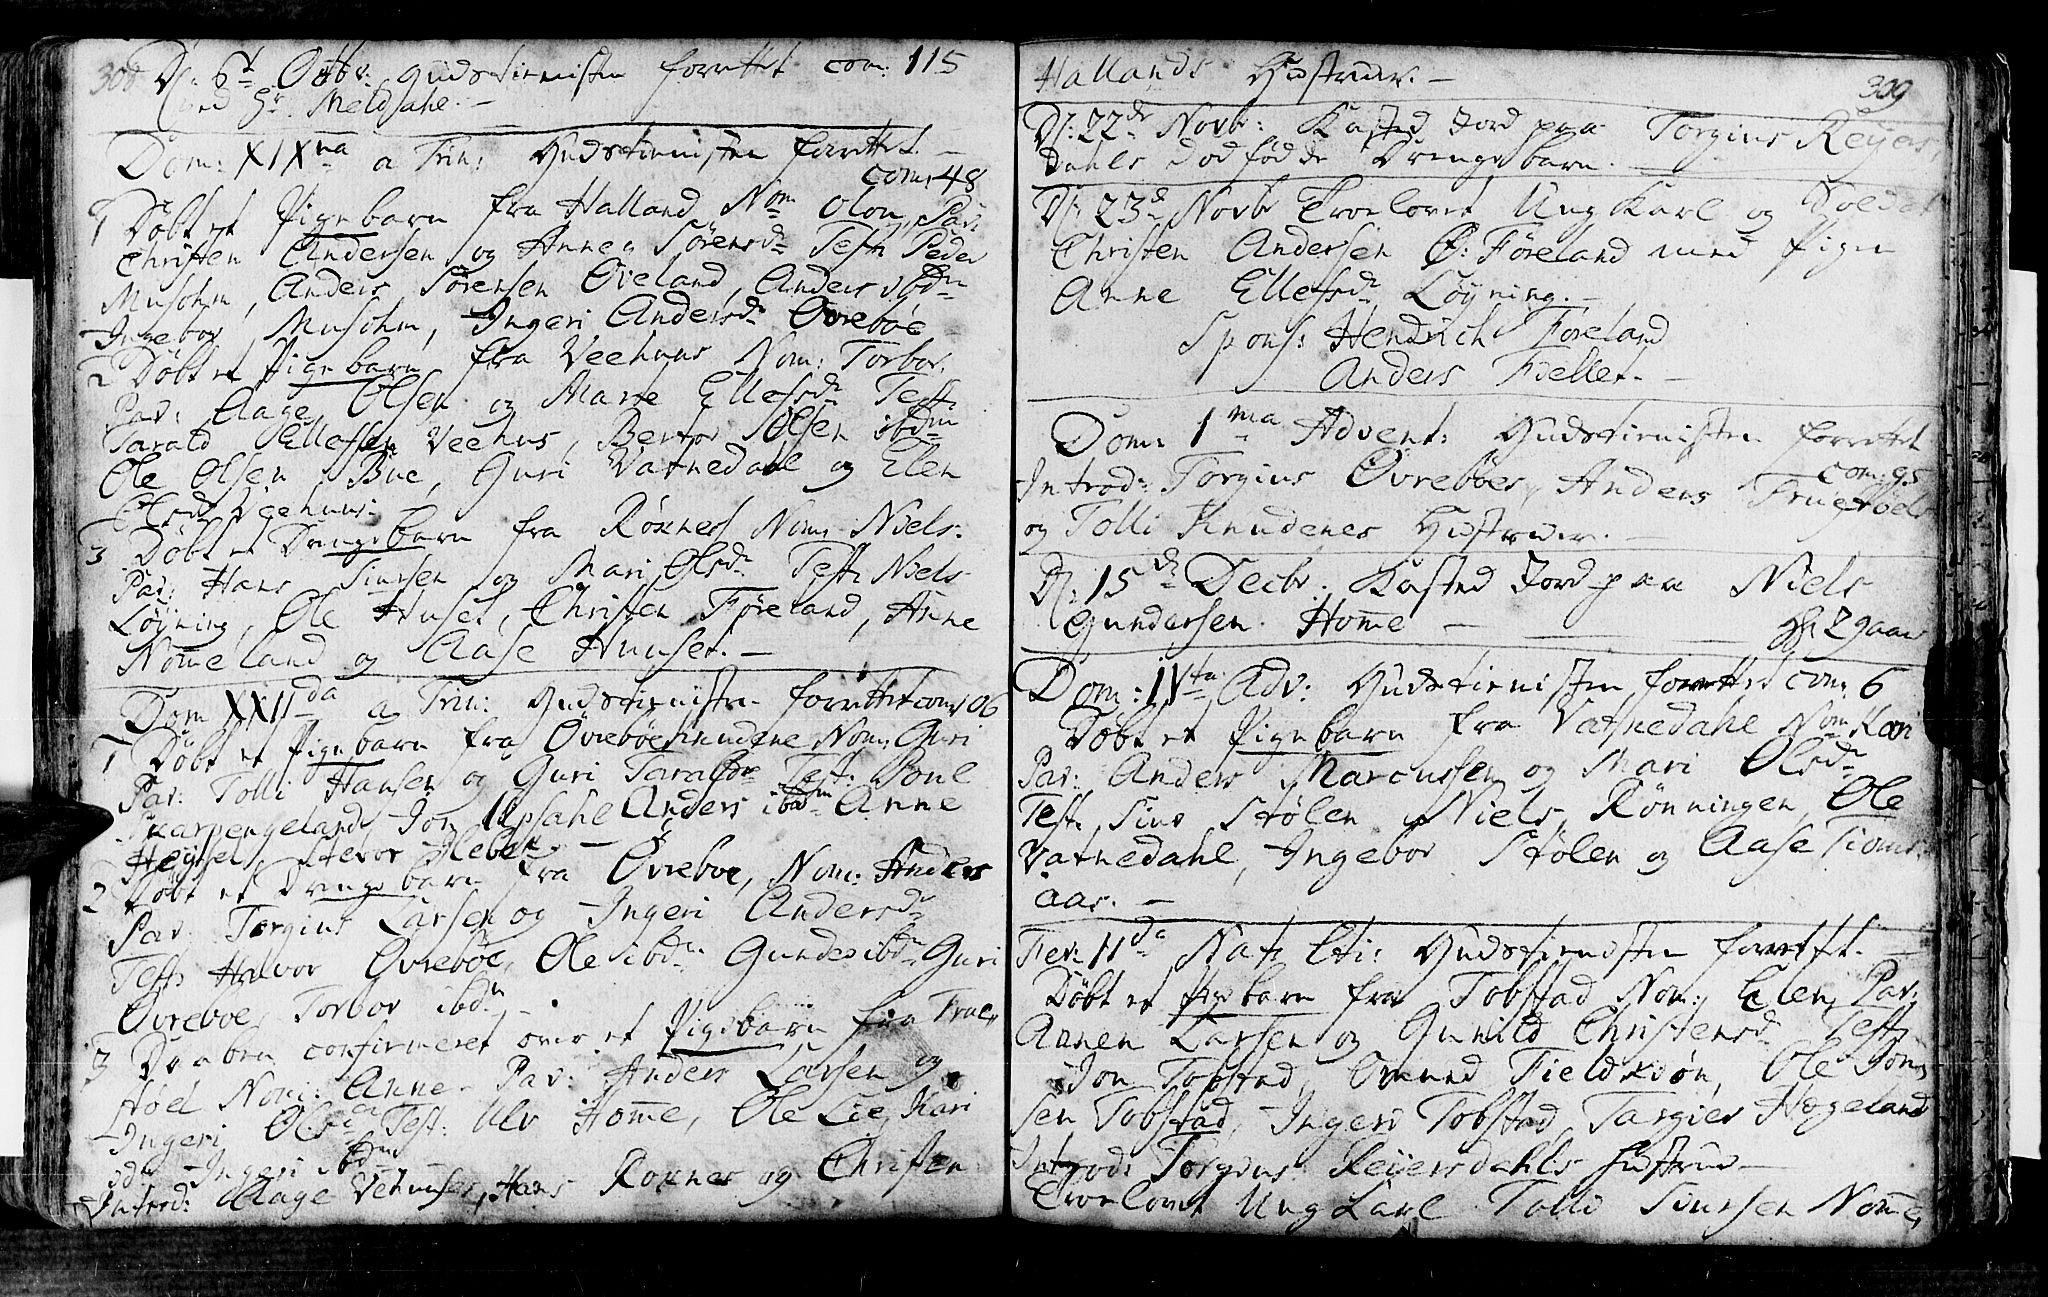 308
D: 6t Octbr: Gudstienisten forrettet com: 115
ved Hr. Meldahl. –
Dom: XIXna a Trin: Gudstienisten forrettet. –
com: 48
1 Døbt et Pigebarn fra Halland Nom: Olou, Par:
Christen Andersen og Anne Sørensdr Test: Peder
Musohm, Anders Sørensen Øveland, Anders ibdm
Ingebor Musohm, Ingeri Andersdr Øvrebøe
2 Døbt et Pigebarn fra Veehuus Nom: Torbor.
Par: Aage Olsen og Marie Ellefsdr Test:
Tarald Ellefsen Veehus, Bertor Olsen ibdm
Ole Olsen Bue, Guri Vatnedahl og Elen
Olsdr Veehuus.
3 Døbt et Drengebarn fra Røxnes Nom: Niels.
Par: Hans Siursen og Mari Olsdr Test: Niels
Løyning, Ole Huset, Christen Føreland, Anne
Nomeland og Aase Huuset. –
Dom XXIIda a Trin: Gudstienisten forrettet com: 106
1 Døbt et Pigebarn fra Øvrebøeknudene Nom: Guri
Par: Tolli Hansen og Guri Taralsdr Test: Poul
Skarpengeland, Jon Upsahl Anders ibdm Anne
Heysel Hævor –
2 Døbt et Drengebarn fra Øvreboe, Nom: Anders
Par: Torgius Larsen og Ingeri Andersdr
Test: Halvor Øvrebøe, Ole ibdm Gunder ibdm Guri
Øvreboe, Torbor ibdm –
3 Daaben confirmeret over et Pigebarn fra Frue-
støel Nom: Anne. Par: Anders Larsen og
Ingeri Olsdr Test: Ulv Home, Ole Lie, Kari
ibdm Ingeri ibdm
Introd: Aage Vehuuses, Hans Røxnes og Christen
309
Hallands Hustruer. –
D: 22de Novbr: Kasted Jord paa Torgius Reyers-
dahls dødfødde Drengebarn. –
D: 23de Novbr Troelovet Ung Karl og Soldat
Christen Andersen Ø: Føreland med Pigen
Anne Ellefsdr Løyning. –
Spons: Hendrich Føreland
Anders Fiellet. –
Dom: 1ma Advent: Gudstienisten forrettet
com: 95
Introd: Torgius Øvrebøes, Anders Fruestøels
og Tolli Knudenes Hustruer. –
D: 15de Decbr: Kasted Jord paa Niels
Gundersen Home –
Dom: IVta Adv: Gudstienisten forrettet com: 6
Døbt et Pigebarn fra Vatnedahl Nom: Kari
Par: Anders Marcussen og Mari Olsdr
Test: Siur Stølen Niels Rønningen, Ole
Vatnedahl, Ingebor Stølen og Aase Tiom-
aas. –
Fer: IIda Nat: Cti: Gudstienisten forrettet. –
Døbt et Pigebarn fra Tobstad Nom: Elen, Par:
Aanen Larsen og Gunild Christensdr Test:
Jon Tobstad, Omund Fieldskøn, Ole Jon-
sen Tobstad, Ingeri Tobstad, Targier Hægeland
Introd: Torgius Reyersdahls Hustrue –
Troelovet Ung Karl Tolli Siursen Nome-